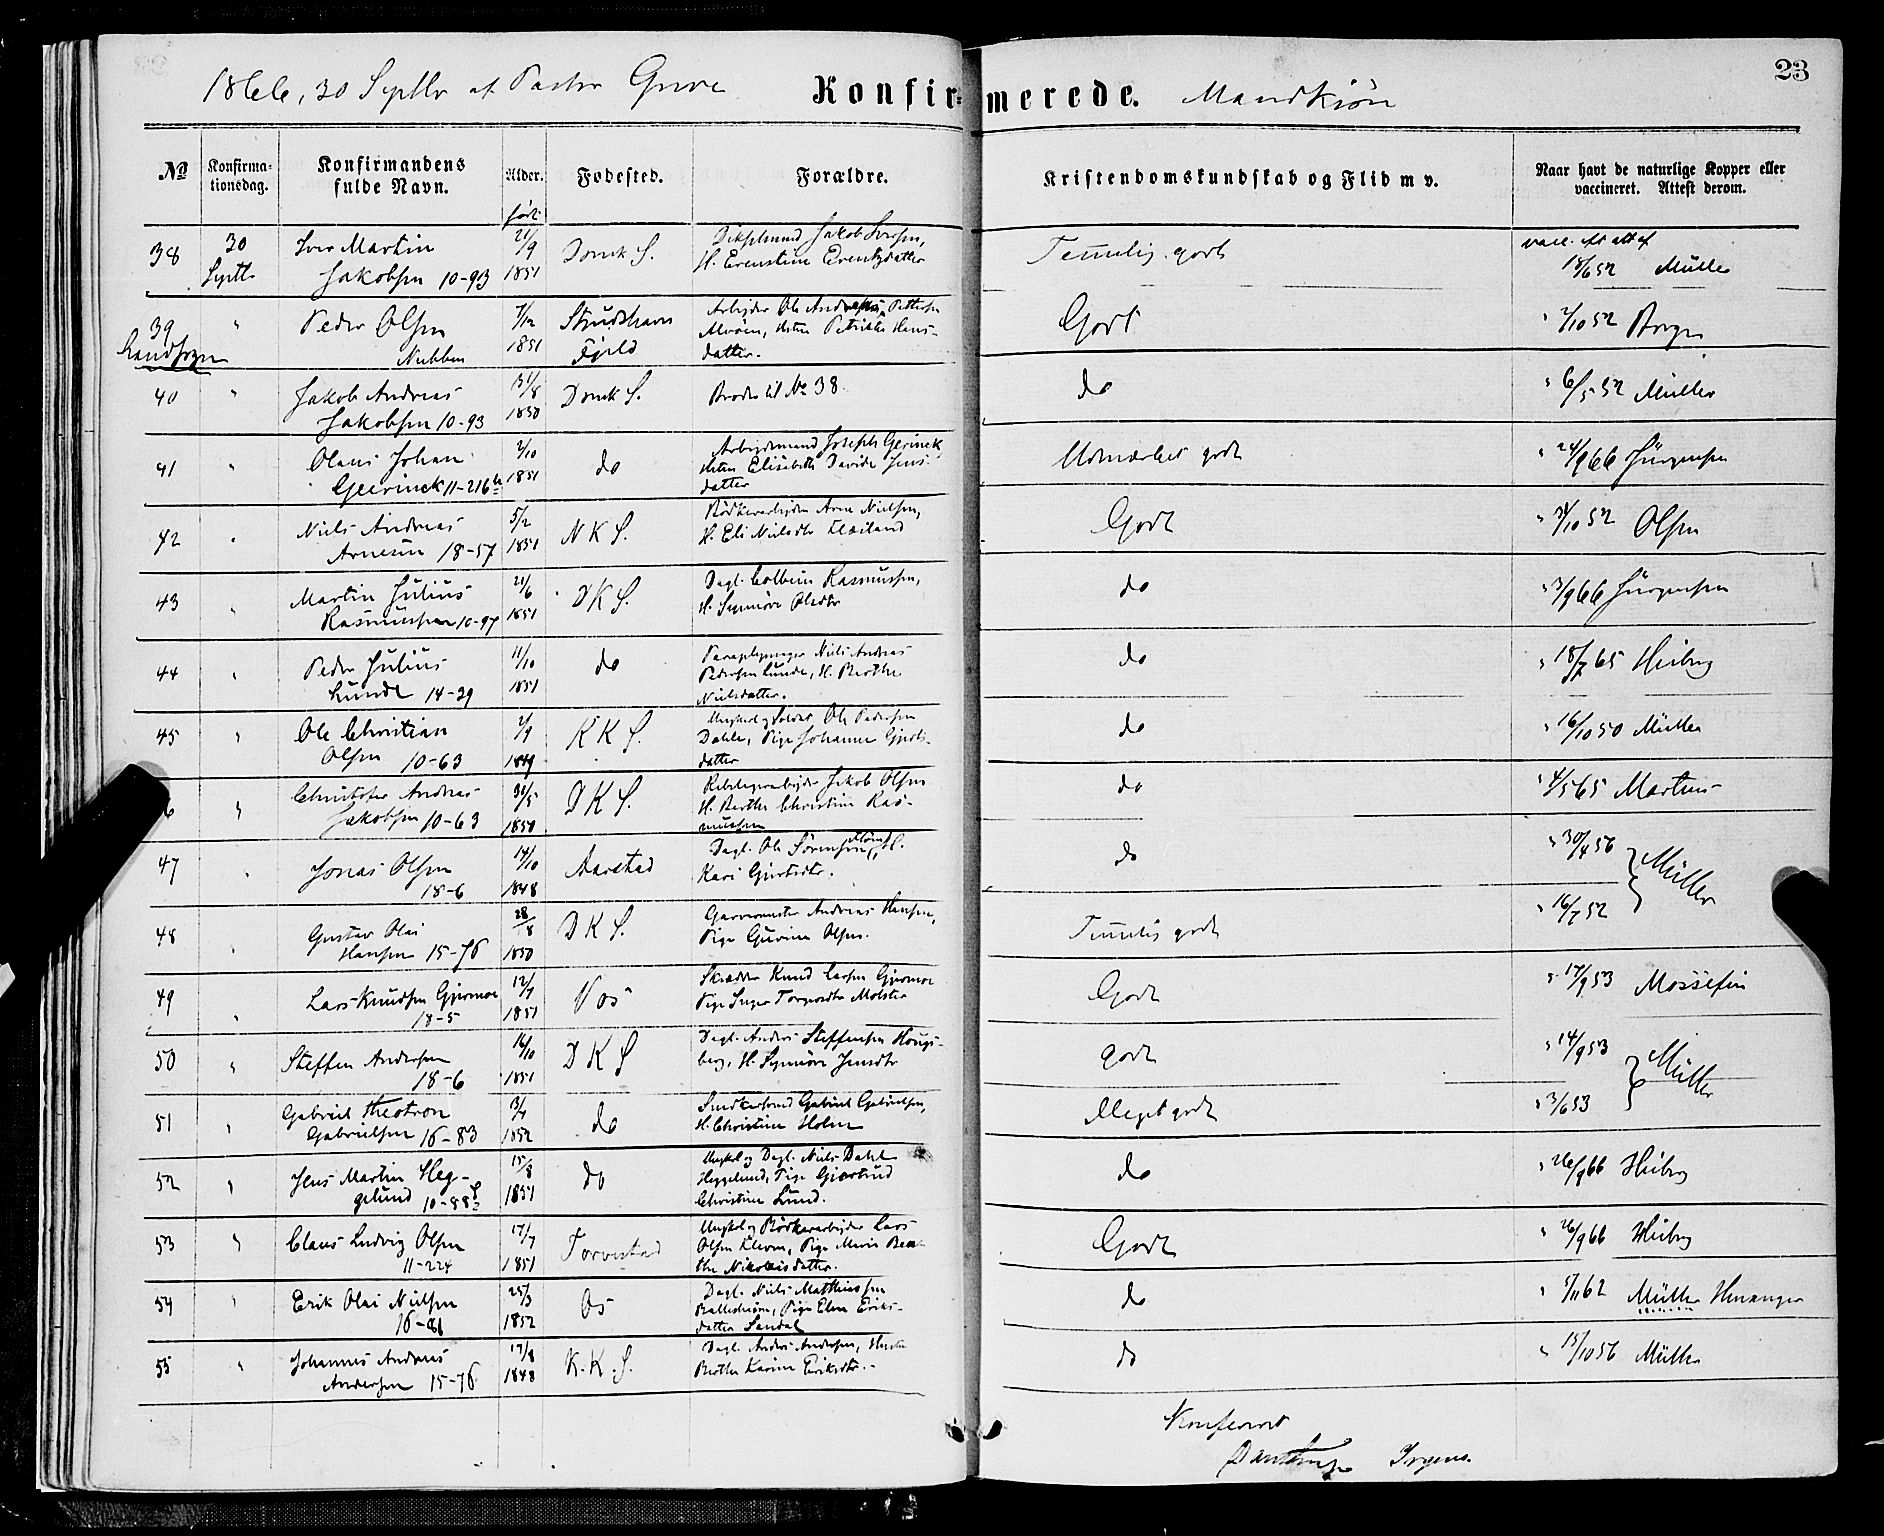 23
1866, 30 Septbr af Pastor Grove
Konfirmerede. Mandkiön
No
Konfirmationsdag.
Konfirmandens fulde Navn.
Alder.
Fødested.
Forældre.
Kristendomskundskab og Flid m v.
Naar havt de naturlige Kopper eller vaccineret. Attest derom.
født
38 30 Septb Iver Martin 21/9 Domk S. Jakob Iversen, Temmelig godt vacc.
Jakobsen 10-93 1851 H. 18/6 52 Müller
39 " Peder Olsen 7/12 Strudshavn Arbeider Ole Godt " 2/10 52
Landsogn Nubben 1851 Fjeld Hans-
datter.
40 " Jakob Andreas 31/8 Domk S. Broder til No 38. do " 6/5 52 Müller
Jakobsen 10-93 1850
41 " Olaus Johan 2/10 do Arbeidsmand Joseph Gerinck Udmærket godt " 24/9 66 Jürgensen
Geerinck 11-216 1851 Elisabeth Davida Jens-
datter
42 " Niels Andreas 5/2 N K S. Bødkerarbeider Arne Nielsen, Godt Olsen
Arnesen 18-57 1851 H. Eli Nielsdtr
43 " Martin Julius 21/6 D K S. Dagl. Colbein Rasmussen, do " 3/9 66 Jürgensen
Rasmussen 10-97 1851 H. Synnöve Olsdtr
44 " Peder Julius 11/10 do Niels Andreas do " 18/7 65 Heiberg
Lunde 14-29 1851 Pedersen Lunde, H. Berthe
Nielsdatter.
45 " Ole Christian 2/9 K K S. Ungkarl og Soldat Ole Pedersen do " 16/10 50 Müller
Olsen 10-63 1849 Dahle, Pige Johanne
datter
6 " Christofer Andreas D K S. Jakob Olsen do " 4/5 65 Martens
Jakobsen 10-63 1850 H. Berthe Christine Ras-
mussen
47 " Jonas Olsen 14/10 Aarstad Dagl. Ole Sörensen H. do " 30/4 56
18-6 1848 Kari Müller
48 " Gustav Olai 28/8 D K S. Garvermester Andreas Hansen, Temmelig godt " 16/7 52
Hansen 15-76 1850 Pige Gurine Olsen.
49 " Lars Knudsen Gjermo 12/7 Vos Knud Larsen Gjermoe Godt " 17/9 53 Mossefin
18-5 1851 Pige Inger Molster
50 " Steffen Andersen 16/10 D K S Dagl. Anders Steffensen Hougs- godt " 14/9 53
18-6 1851 berg, H. Synnöve Jensdtr Müller
51 " Gabriel Theotron 13/4 do Gabriel Gabrielsen, Meget godt " 3/6 53
Gabrielsen 16-83 1852 H. Christine Holm
52 " Jens Martin Heg- 15/8 do Ungkl og Dagl. Niels Dahl do " 26/9 66 Heiberg
gelund 10-88 1851 Heggelund, Pige Gjertrud
Christine Lund.
53 " Claus Ludvig Olsen 17/7 Torvestad Ungkl og Bödkerarbeider Lars Godt " 26/9 66 Heiberg
11-224 1851 Olsen Pige Maren
Nikolaisdatter.
54 " Erik Olai Nielsen 25/3 Os Dagl. Niels Matthiassen do " 5/11 62 Müller
16-81 1852 Pige Elen Eriks-
datter Sandal
55 " Johannes Andreas 17/8 K. K. S. Dagl. Anders Andersen, do " 15/10 56 Müller
Andersen 15-76 1848 Berthe Karine Eriksdtr.
Konfereret
Irgens.